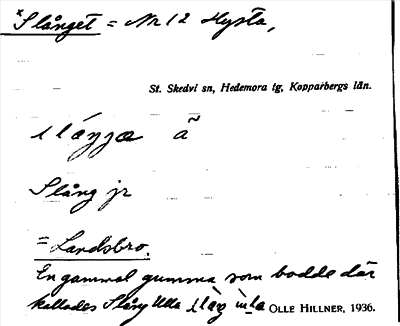 *Slånget = Nr 12 Hysta,
St. Skedvi sn, Hedemora tg, Kopparbergs län.
Slång jr
= Landsbro.
En gammal gumma som bodde där
kallades Slång Ulla OLLE HILLNER, 1936.